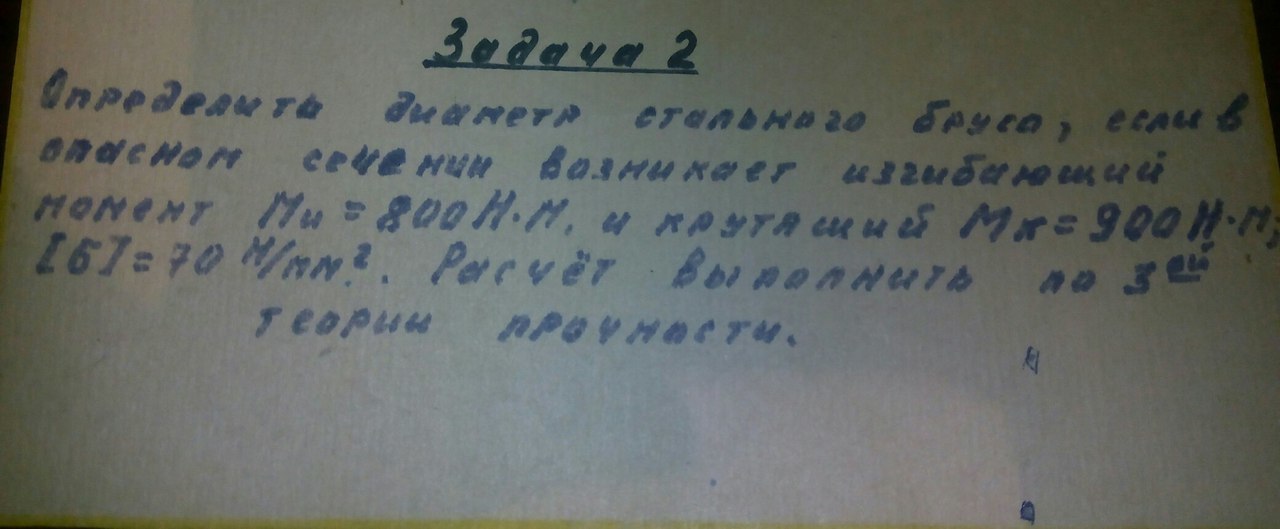 Задача 2
Определить диаметр стального бруса, если в
опасном сечении возникает изгибающий
момент Ми = 800 Н·м. и крутящий Мк = 900 Н·м,
[б] = 70 Н/мм². Расчёт выполнить по 3ей
теории прочности.